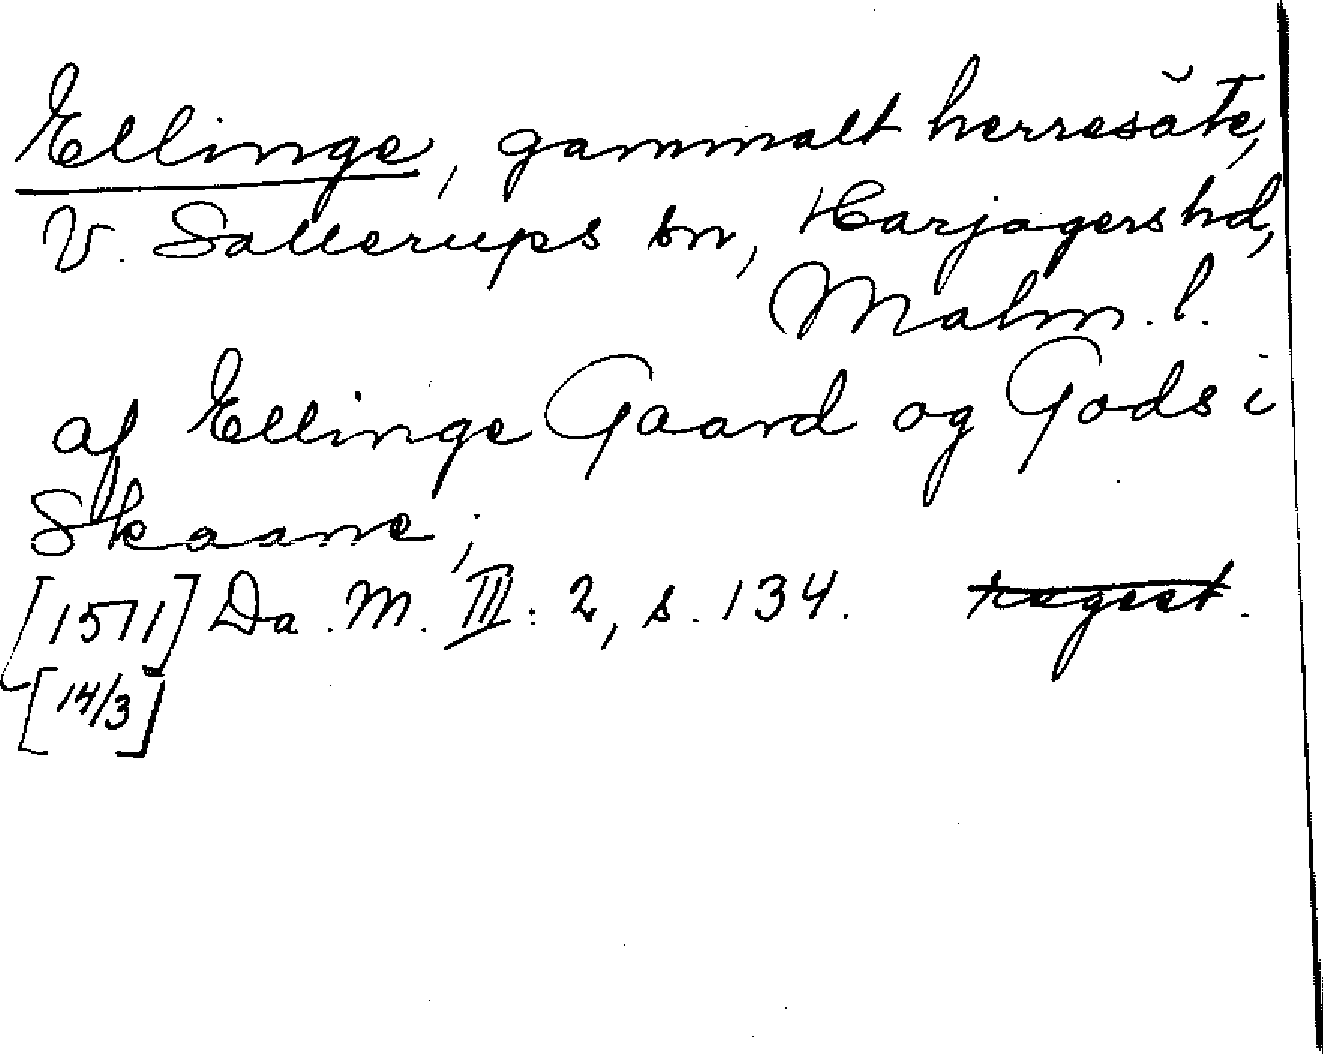 Ellinge, gammalt herresäte,
V. Sallerups sn, Harjagers hd,
Malm. l.
af Ellinge Gaard og Gods i
Skaane;
[1571] Da. M. III: 2, s. 134. regest.
[14/3]